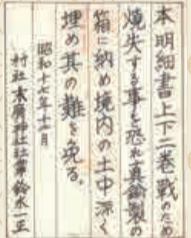 本明細書上下二巻戦のため
焼失する事を恐れ真鍮製の
箱に納め境内の土中深く
埋め其の難を免る。
昭和十七年十二月
村社末廣神社社掌鈴木一正